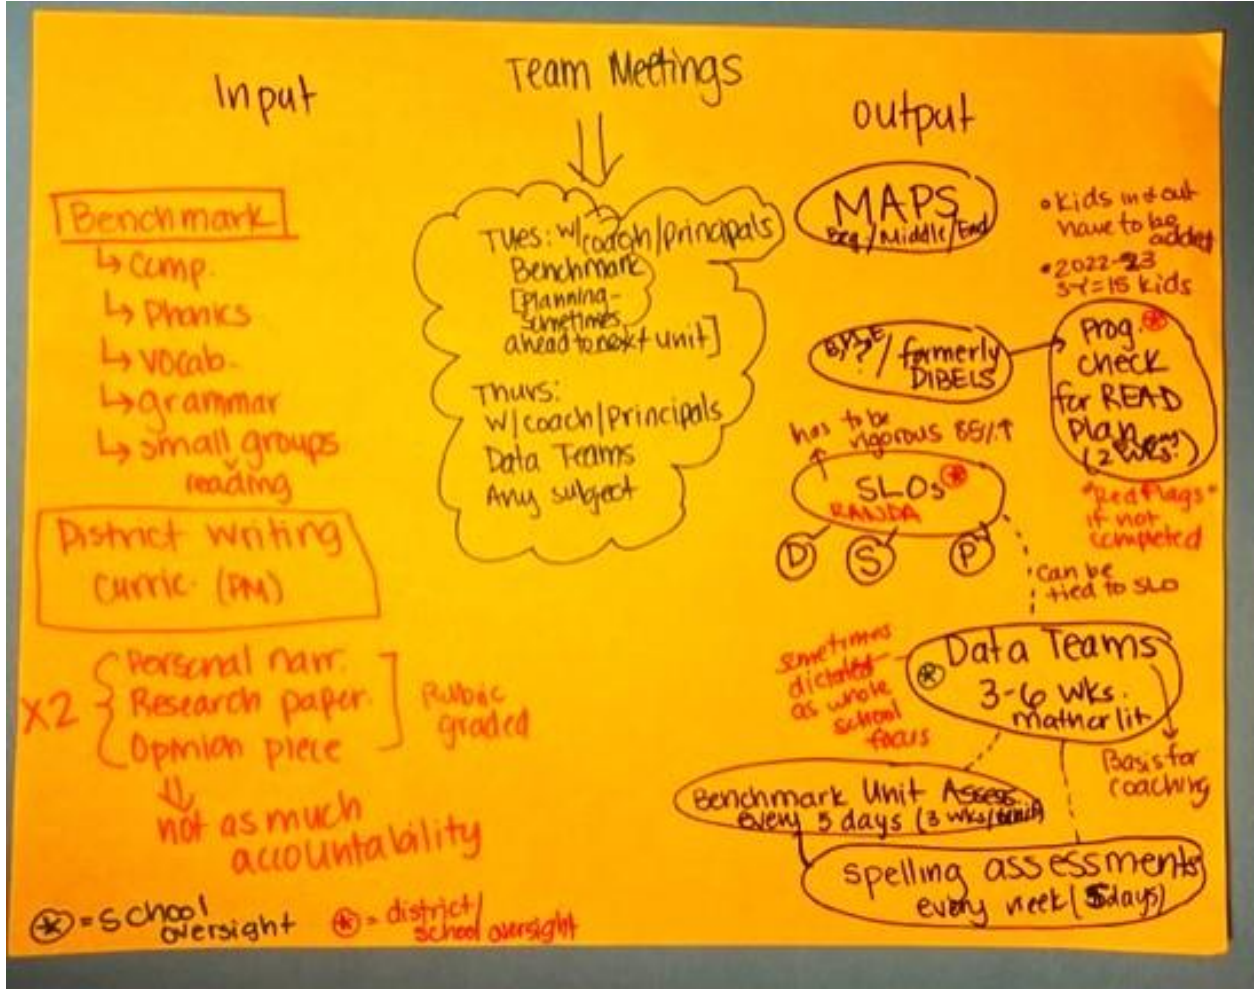 Input
Benchmark
↳ Comp.
↳ Phonics
↳ vocab.
↳ grammar
↳ small groups
reading
District Writing
Curric. (PM)
X2
Personal narr.
Research paper.
Opinion piece
Rubric
graded
not as much
accountability
= School
oversight
= district/
school oversight
Team Meetings
Tues: w/coach/principals
Benchmark
[Planning-
sometimes
ahead to next unit]
Thurs:
w/coach/principals
Data Teams
Any subject
output
MAPS
Beg/Middle/End
• Kids in & out
have to be
added
• 2022-23
SY=15 kids
/ formerly
DIBELS
Prog.
check
for READ
Plan
has to be
rigorous 85%↑
SLOs
RANDA
D S P
"Red Flags"
if not
completed
• can be
tied to SLO
sometimes
dictated
as whole
school
focus
Data Teams
3-6 wks.
math or lit
Basis for
coaching
Benchmark Unit Assess.
every 5 days (3 wks/
spelling assessments
every week (5days)